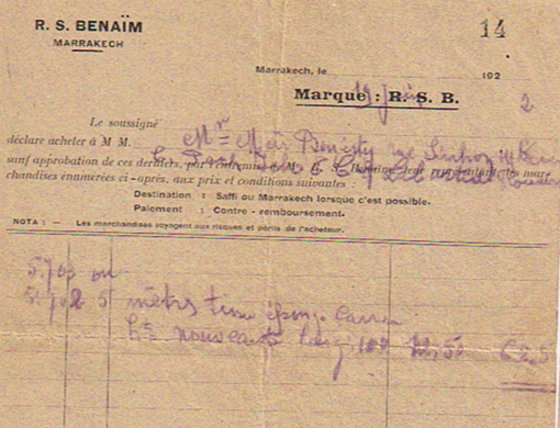 R. S. BENAÏM
MARRAKECH
14
Marrakech, le 19 192 2
Marque : R. S. B.
Le soussigné
déclare acheter à M M. Mr Meïr
sauf approbation de ces derniers, par l'entremise de M. R. S. Benaïm leur représentant les mar-
chandises énumérées ci-après, aux prix et conditions suivantes :
Destination : Saffi ou Marrakech lorsque c'est possible.
Paiement : Contre-remboursement.
NOTA : — Les marchandises voyagent aux risques et périls de l'acheteur.
5.703 ou
5.702 5 mètres tissu éponge
nouveauté larg. 100